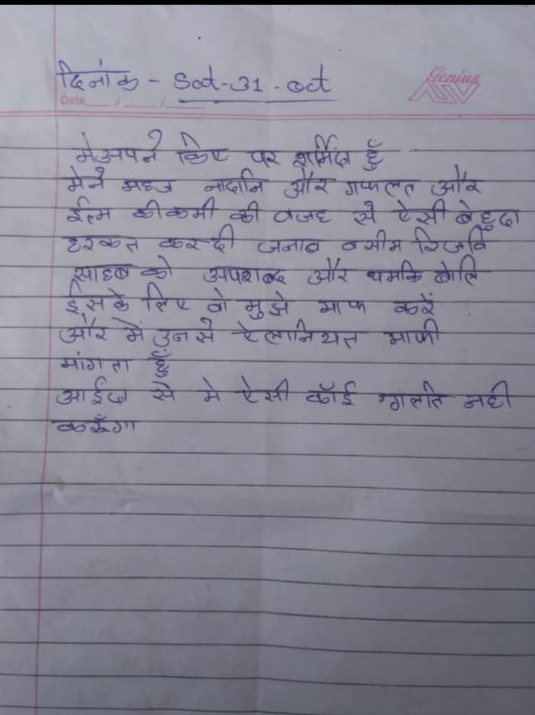 दिनांक - Sat-31-oct
Genius
Date
मेअपने किए पर शर्मिंदा हूँ
मेने महज नादानि और गफलत और
ईल्म कीकमी की वजह से ऐसी बेहुदा
हरकत करदी जनाब वसीम रिजवि
साहब को अपशब्द और धमकि बोलि
ईसके लिए वो मुझे माफ करें
और में उनसे ऐलानियत माफी
मांगता हूँ
आईंदा से मे ऐसी कोई गलति नही
करूँगा